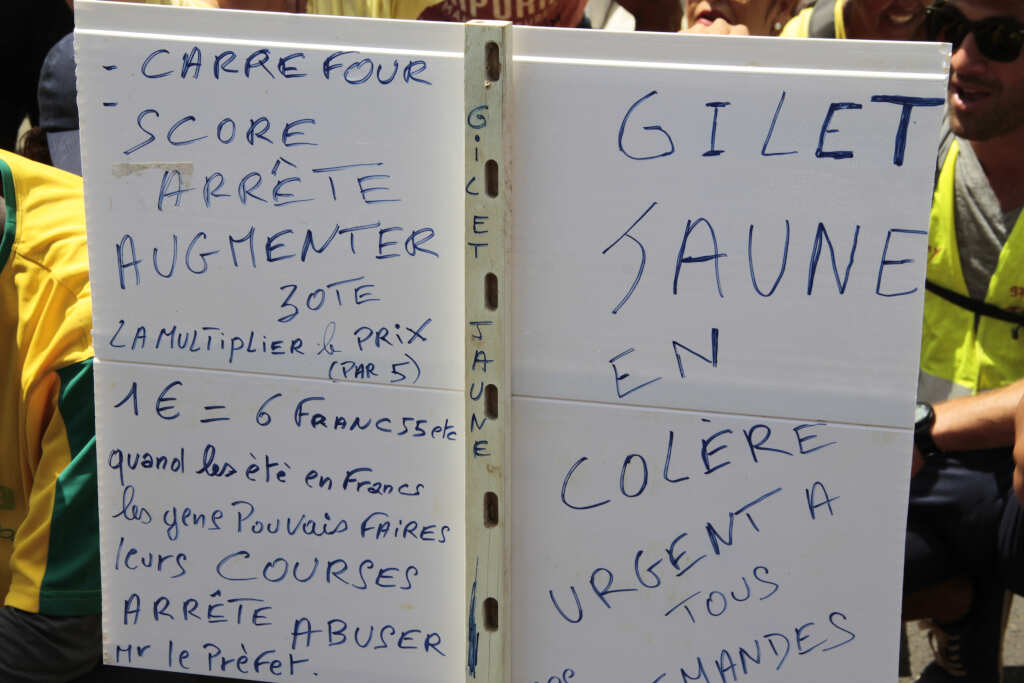 - CARREFOUR
-
SCORE
ARRÊTE
AUGMENTER
ZOTE
LA MULTIPLIER le PRIX
(PAR 5)
1€ = 6 FRANC 55 etc
quand les ètè en Francs
les gens Pouvais FAIRES
leurs COURSES
ARRÊTE ABUSER
Mr le Prèfet.
GiLET JAUNE
GILET
JAUNE
EN
COLÈRE
URGENT A
TOUS